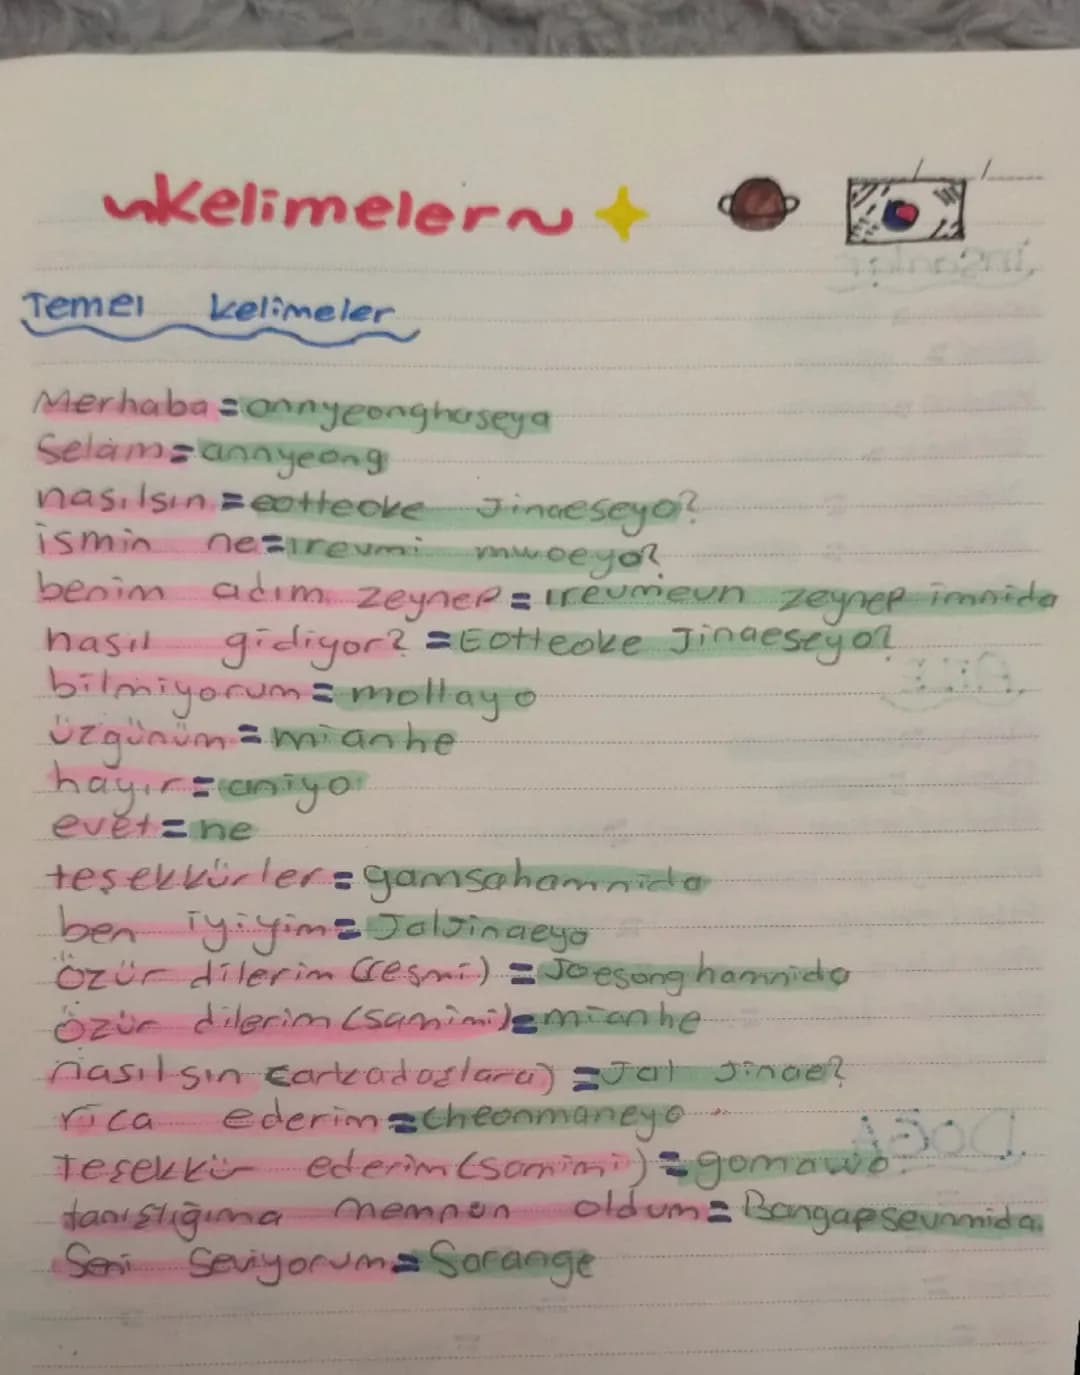 ~Kelimeler~
Temel kelimeler
Merhaba = annyeonghaseya
Selam = annyeong
nasılsın = eotteoke Jinaeseyo?
ismin ne = ireumi mwoeyo?
benim adım zeynep = ireumeun zeynep imnida
nasıl gidiyor? = Eotteoke Jinaeseyo?
bilmiyorum = mollayo
üzgünüm = mianhe
hayır = aniyo
evet = ne
teşekkürler = gamsahamnida
ben iyiyim = Jaljinaeyo
Özür dilerim (resmi) = Joesonghamnida
Özür dilerim (samimi) = mianhe
nasılsın (arkadaşlara) = Jal Jinae?
rica ederim = cheonmaneyo
Teşekkür ederim (samimi) = gomawo
tanıştığıma memnun oldum = Bangapseumnida.
Seni Seviyorum = Sarange